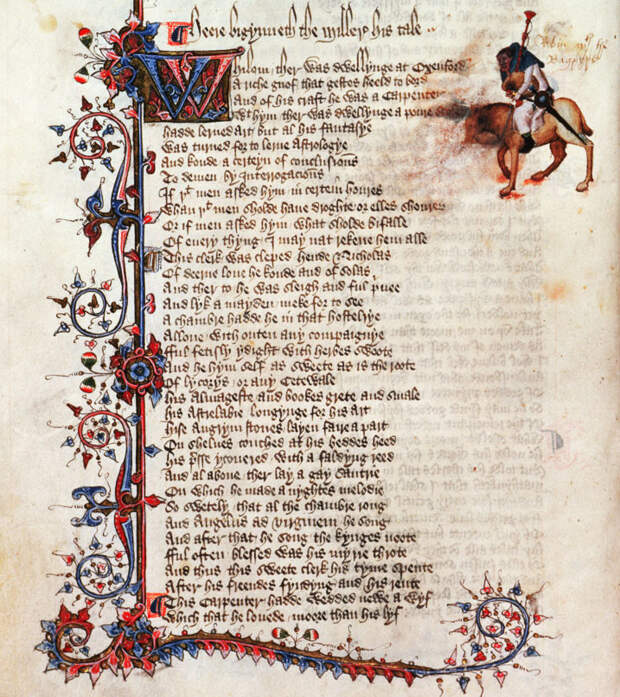 Heere bigynneth the Millere his tale
Whilom ther was dwellynge at Oxenford
A riche gnof that gestes heeld to bord
And of his craft he was a Carpenter
With hym ther was dwellynge a poure
hadde lerned art but al his fantasye
Was turned for to lerne Astrologye
And koude a certeyn of conclusions
To demen by Interrogacions
If þt men asked hym in certein houres
Whan þt men sholde haue droghte or elles shoures
Or if men asked hym what sholde bifalle
Of euery thyng I may nat rekene hem alle
This clerk was cleped hende Nicholas
Of deerne loue he koude and of solas
And ther to he was sleigh and ful priuee
And lyk a mayden meke for to see
A chambre hadde he in that hostelrye
Allone with outen any compaignye
fful fetisly ydight with herbes swoote
And he hym self as sweete as is the roote
Of lycorys or any Cetewale
his Almageste and bookes grete and smale
his Astrelabie longynge for his art
hise Augrym stones layen faire a part
On shelues couched at his beddes heed
his presse ycouered with a faldyng reed
And al aboue ther lay a gay Sautrie
On which he made a nyghtes melodie
So swetely that al the chambre rong
And Angelus ad virginem he song
And after that he song the kynges noote
fful often blessed was his myrie throte
And thus this sweete clerk his tyme spente
After his freendes fyndyng and his rente
This Carpenter hadde wedded newe a wyf
Which that he louede moore than his lyf